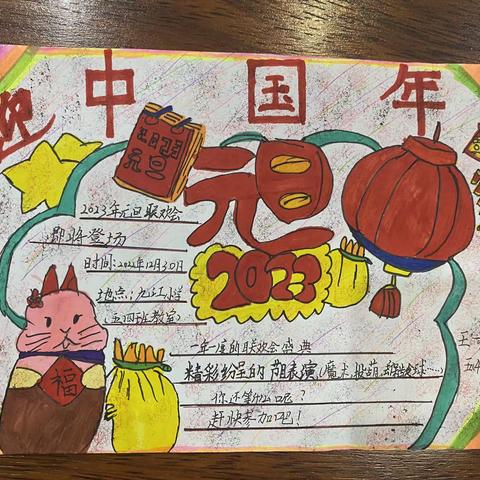 迎
中国年
元旦
元旦
2023
2023年元旦联欢会
即将登场
时间:2022年12月30日
地点:九江小学
(五四班教室)
一年一度的联欢会盛典
精彩纷呈的节目表演(魔术、
你还等什么呢?
赶快参加吧!
福